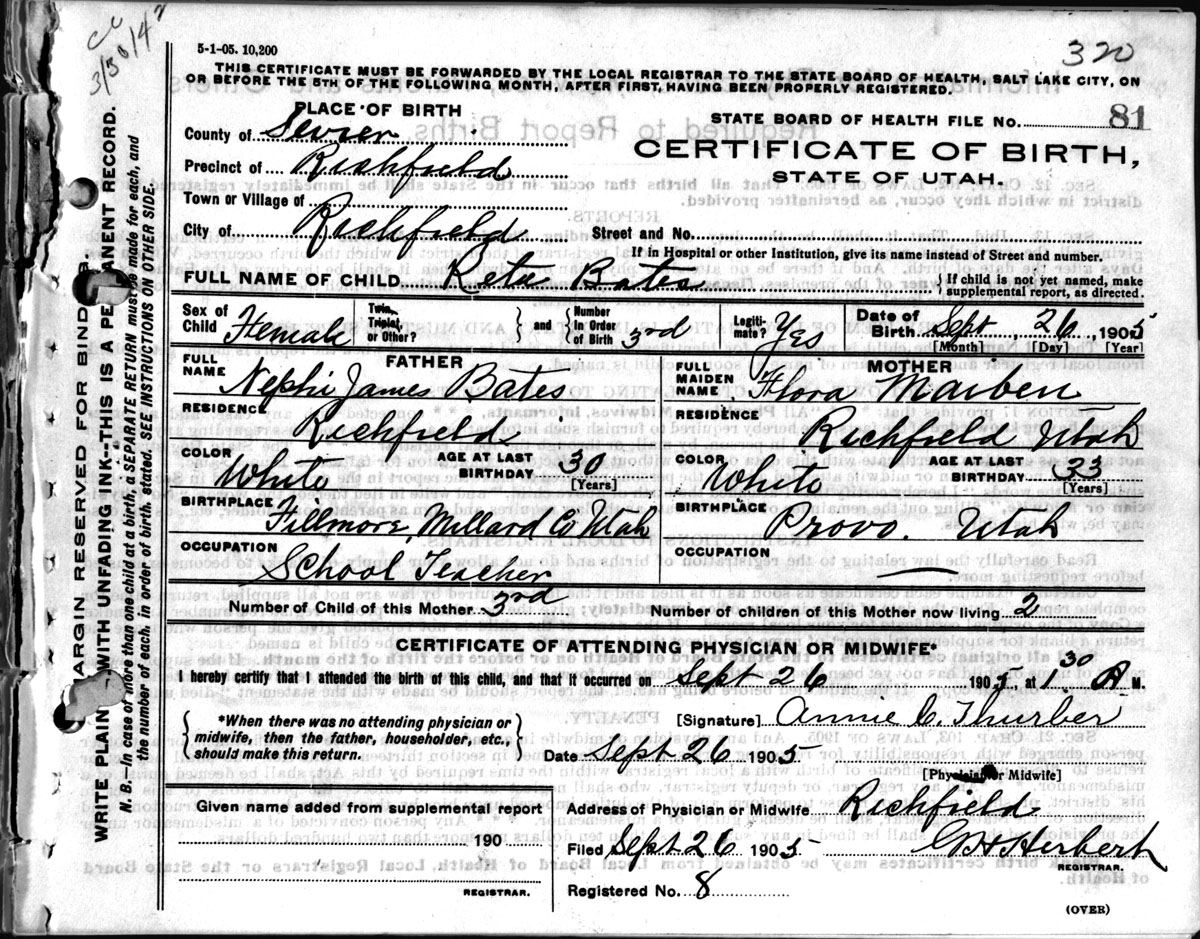 cc 3/30/42
320
5-1-05. 10,200
THIS CERTIFICATE MUST BE FORWARDED BY THE LOCAL REGISTRAR TO THE STATE BOARD OF HEALTH, SALT LAKE CITY, ON
OR BEFORE THE 5TH OF THE FOLLOWING MONTH, AFTER FIRST, HAVING BEEN PROPERLY REGISTERED.
PLACE OF BIRTH
STATE BOARD OF HEALTH FILE NO. 81
County of Sevier
CERTIFICATE OF BIRTH,
STATE OF UTAH.
Precinct of Richfield
Town or Village of
City of Richfield Street and No.
If in Hospital or other Institution, give its name instead of Street and number.
FULL NAME OF CHILD Reta Bates { If child is not yet named, make
supplemental report, as directed.
Sex of Child Female Twin, Triplet, or Other? } and { Number in Order of Birth 3rd Legitimate? Yes Date of Birth Sept 26, 1905
[Month] [Day] [Year]
FATHER
FULL NAME Nephi James Bates
RESIDENCE Richfield
COLOR White AGE AT LAST BIRTHDAY 30 [Years]
BIRTHPLACE Fillmore, Millard Co Utah
OCCUPATION School Teacher
MOTHER
FULL MAIDEN NAME Flora Maiben
RESIDENCE Richfield Utah
COLOR White AGE AT LAST BIRTHDAY 33 [Years]
BIRTHPLACE Provo. Utah
OCCUPATION —
Number of Child of this Mother 3rd Number of children of this Mother now living 2
CERTIFICATE OF ATTENDING PHYSICIAN OR MIDWIFE*
I hereby certify that I attended the birth of this child, and that it occurred on Sept 26 1905, at 1.30 A M.
{ *When there was no attending physician or
midwife, then the father, householder, etc.,
should make this return. }
[Signature] Annie C. Thurber
Date Sept 26 1905
[Physician or Midwife]
Given name added from supplemental report
190
REGISTRAR.
Address of Physician or Midwife Richfield
Filed Sept 26 1905 G H Herbert
REGISTRAR.
Registered No. 8
(OVER)
MARGIN RESERVED FOR BINDING.
WRITE PLAINLY WITH UNFADING INK--THIS IS A PERMANENT RECORD.
N. B.—In case of more than one child at a birth, a SEPARATE RETURN must be made for each, and
the number of each, in order of birth, stated. SEE INSTRUCTIONS ON OTHER SIDE.